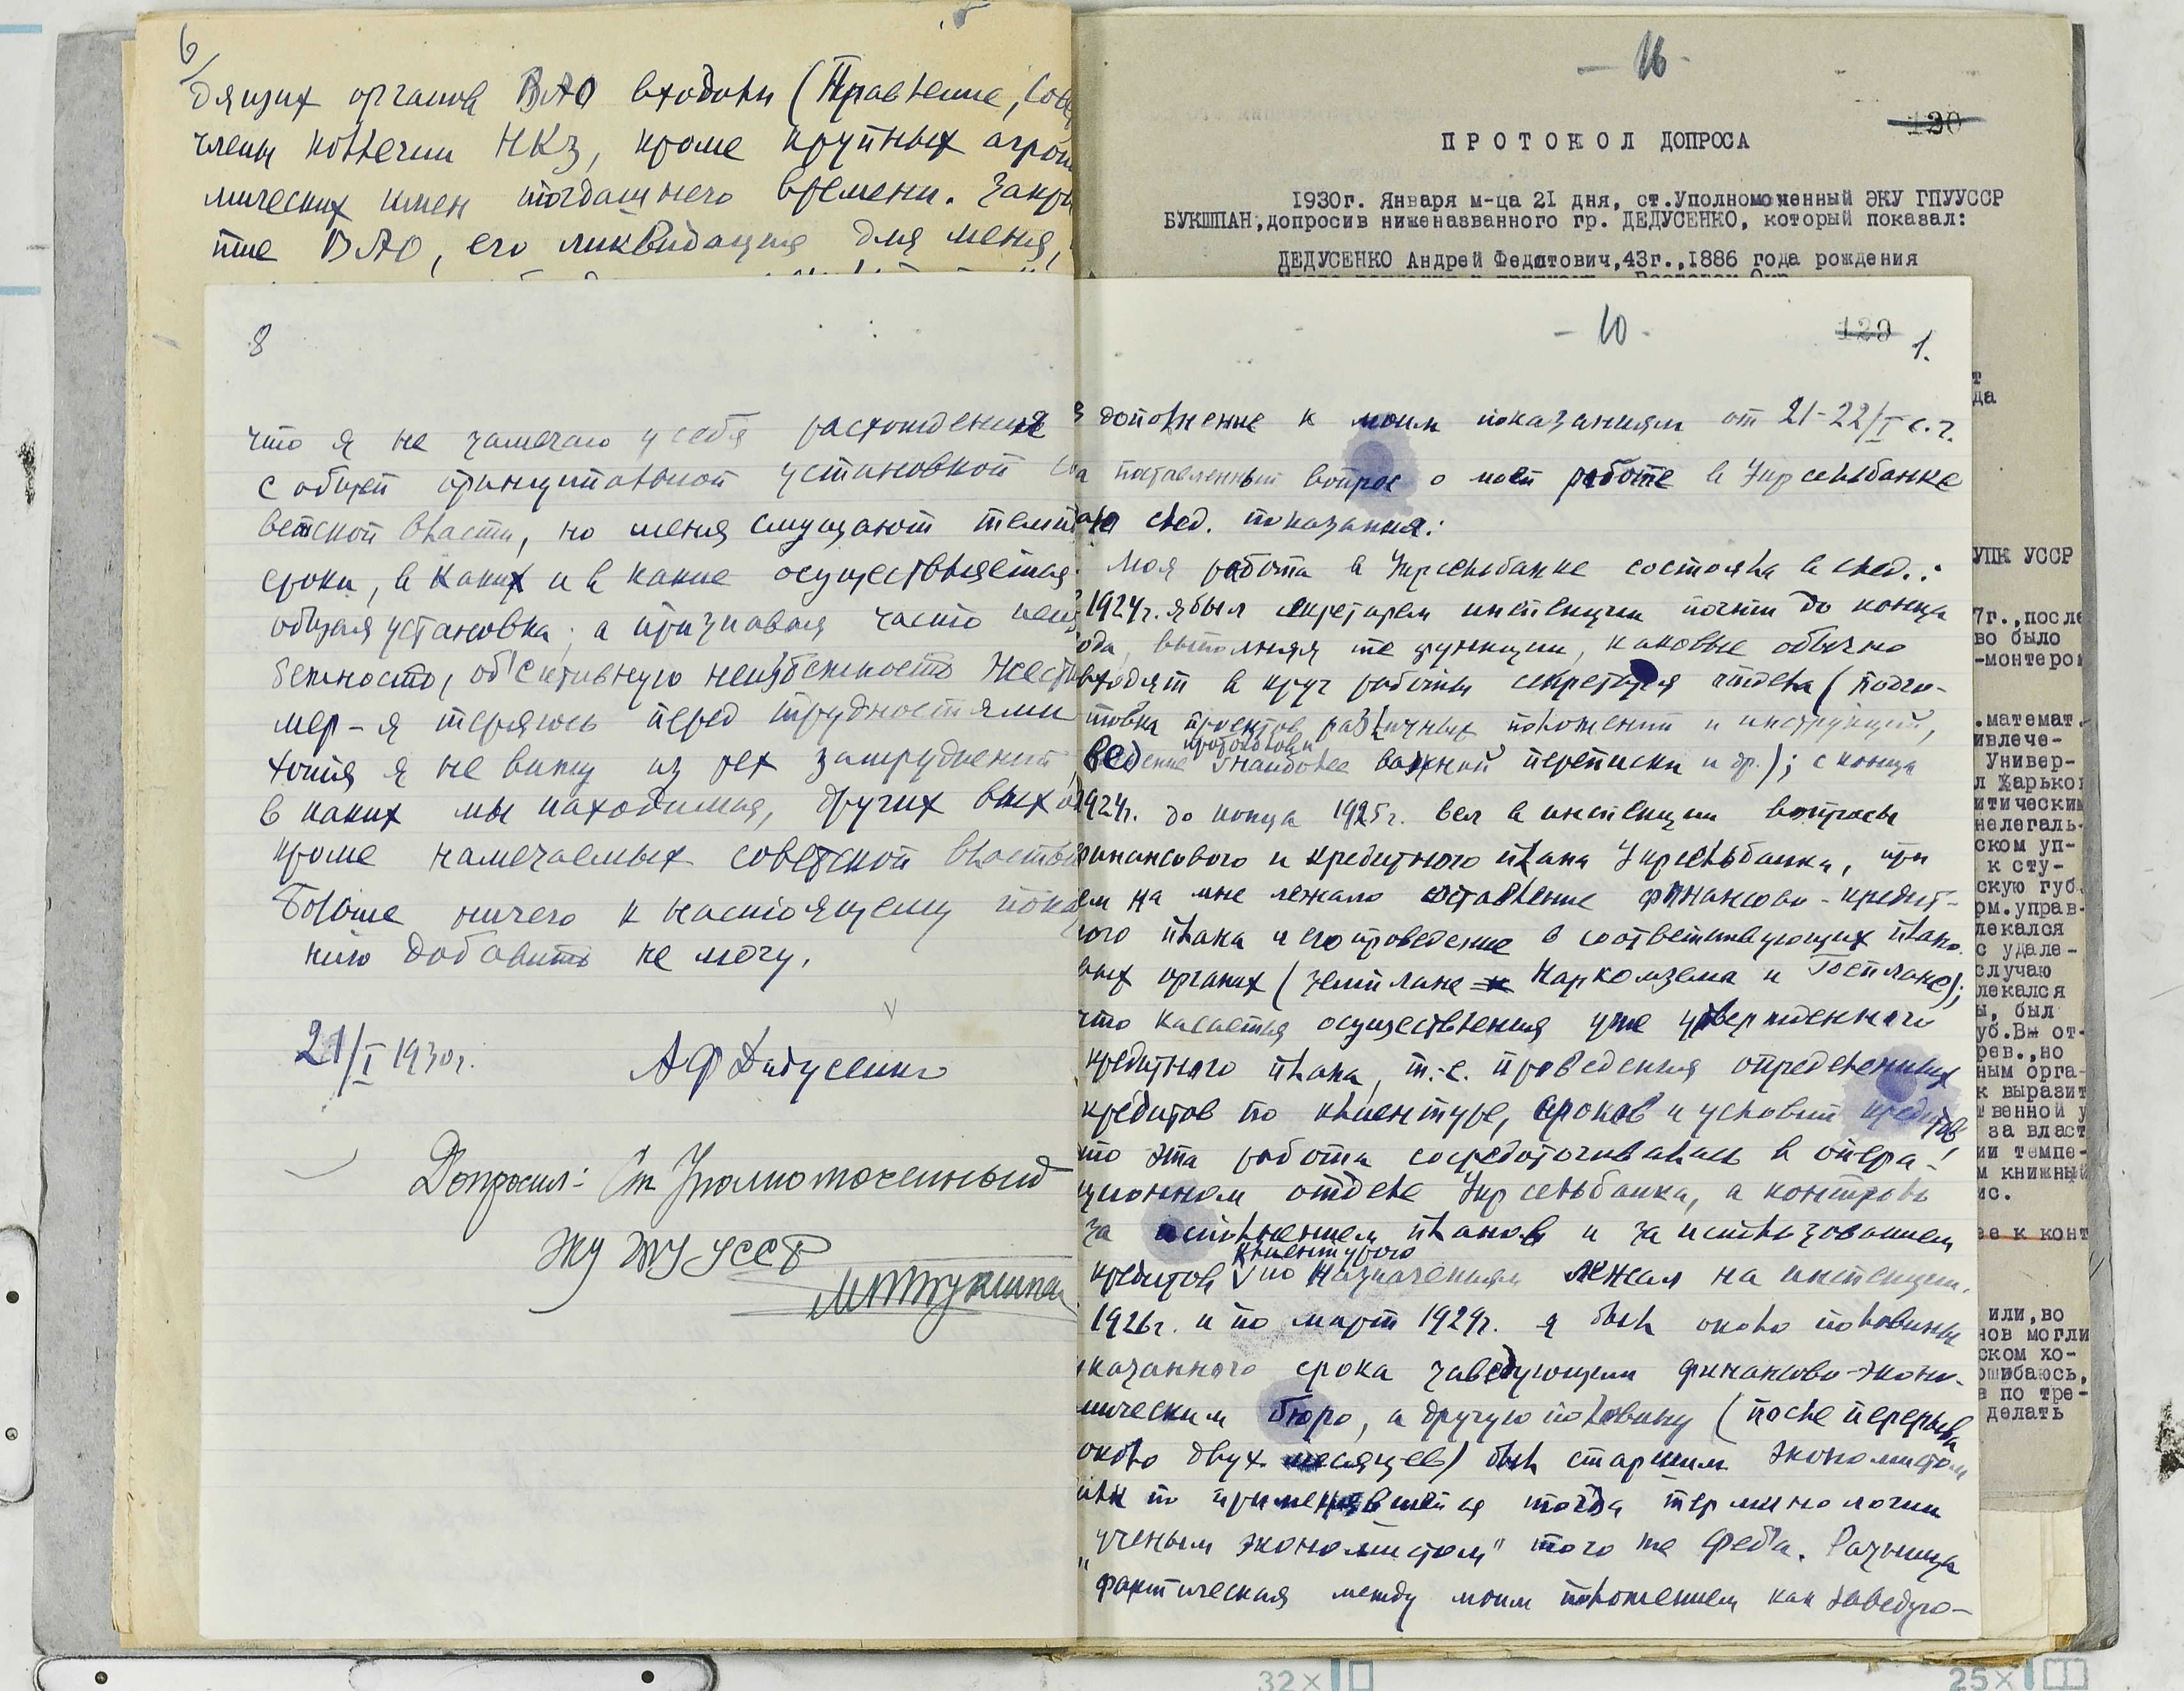 6
дящих органов ВАО входили (Правление, Сове
члены коллегии НКЗ, кроме крупных агроно
мических имен тогдашнего времени. Закры
тие ВАО, его ликвидация для меня,
8
что я не замечаю у себя расхождения
с общей принципиальной установкой со
ветской власти, но меня смущают темпы
сроки, в каких и в какие осуществляется
общая установка; а признавая часто неиз
бежность, об'ективную неизбежность жестк
мер - я теряюсь перед трудностями
хотя я не вижу из тех затруднений,
в каких мы находимся, других выхо
кроме намечаемых советской властью
Больше ничего к настоящему пока
нию добавить не могу.
21/I 1930г.
АФДедусенко
Допросил: Ст Уполномоченный
ЭКУ ГПУ УССР
- 16 -
130
ПРОТОКОЛ ДОПРОСА
1930г. Января м-ца 21 дня, ст.Уполномоченный ЭКУ ГПУУССР
БУКШПАН,допросив ниженазванного гр. ДЕДУСЕНКО, который показал:
ДЕДУСЕНКО Андрей Федотович,43г.,1886 года рождения
- 10 -
128
1.
В дополнение к моим показаниям от 21-22/I с.г.
на поставленный вопрос о моей работе в Укрсельбанке
даю след. показания:
Моя работа в Укрсельбанке состояла в след.:
1924г. я был секретарем инспекции почти до конца
ода, выполняя те функции, каковые обычно
входят в круг работы секретаря отдела (подго-
товка проектов различных положений и инструкций,
протоколов и
ведение наиболее важной переписки и др.); с конца
1924г. до конца 1925г. вел в инспекции вопросы
финансового и кредитного плана Укрсельбанка, при
ем на мне лежало составление финансово-кредит-
ного плана и его проведение в соответствующих плано-
вых органах (земплане Наркомзема и Госплане);
что касается осуществления уже утвержденного
кредитного плана, т.-е. проведения определенных
кредитов по клиентуре, сроков и условий кредитов,
то эта работа сосредоточивалась в опера-
ционном отделе Укрсельбанка, а контроль
за исполнением планов и за использованием
клиентурою
кредитов по назначениям лежал на инспекции.
1926г. и по март 1929г. я был около половины
указанного срока заведующим финансово-эконо-
мическим бюро, а другую половину (после перерыва
около двух месяцев) был старшим экономистом
или по применявшейся тогда терминологии
„ученым экономистом" того же Феб'а. Разница
фактическая между моим положением как заведую-
т
да
УПК УССР
7г.,после
во было
-монтером
.математ.
ивлече-
Универ-
л Харьков
итическим
нелегаль-
ском уп-
к сту-
скую губ.
рм.управ-
лекался
с удале-
случаю
лекался
ы, был
уб.Вы от-
рев.,но
ным орга-
к выразит
твенной у
за власт
ии темпе-
м книжный
ис.
ее к конт
или,во
нов могли
ском хо-
ошибаюсь,
а по тре-
делать
32×
25×